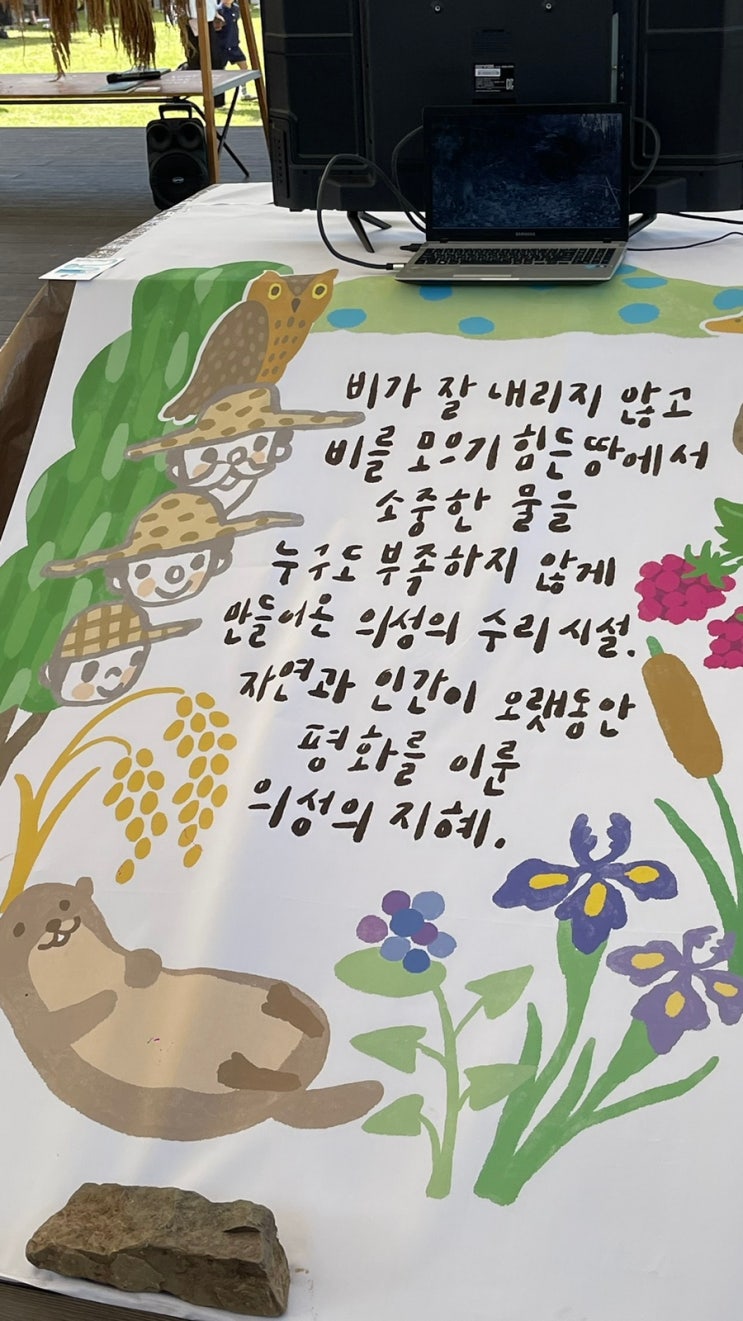 SAMSUNG
비가 잘 내리지 않고
비를 모으기 힘든 땅에서
소중한 물을
누구도 부족하지 않게
만들어온 의성의 수리시설.
자연과 인간이 오랫동안
평화를 이룬
의성의 지혜.